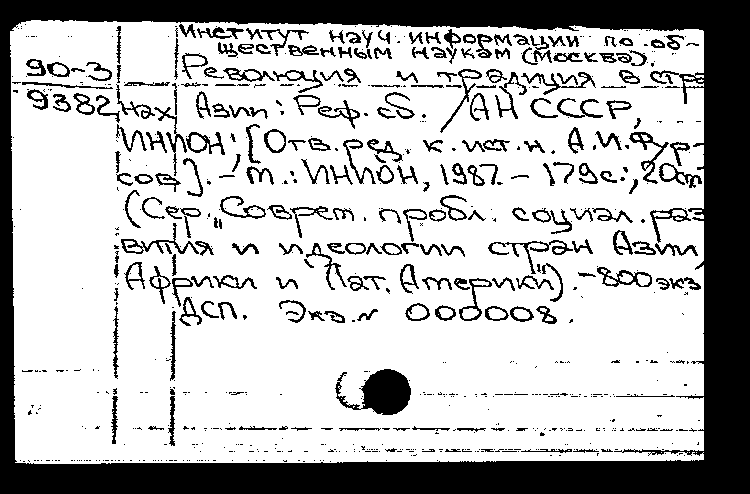 Институт науч. информации по об-
щественным наукам (Москва).
90-3 Революция и традиция в стра
9382 нах Азии: Реф. сб. / АН СССР,
ИНИОН; [Отв. ред. к. ист. н. А.И. Фур-
сов]. - М.: ИНИОН, 1987. - 179 с.; 20 см
(Сер. „Соврем. пробл. социал. раз
вития и идеологии стран Азии,
Африки и Лат. Америки"). - 800 экз
ДСП. Экз. № 000008.